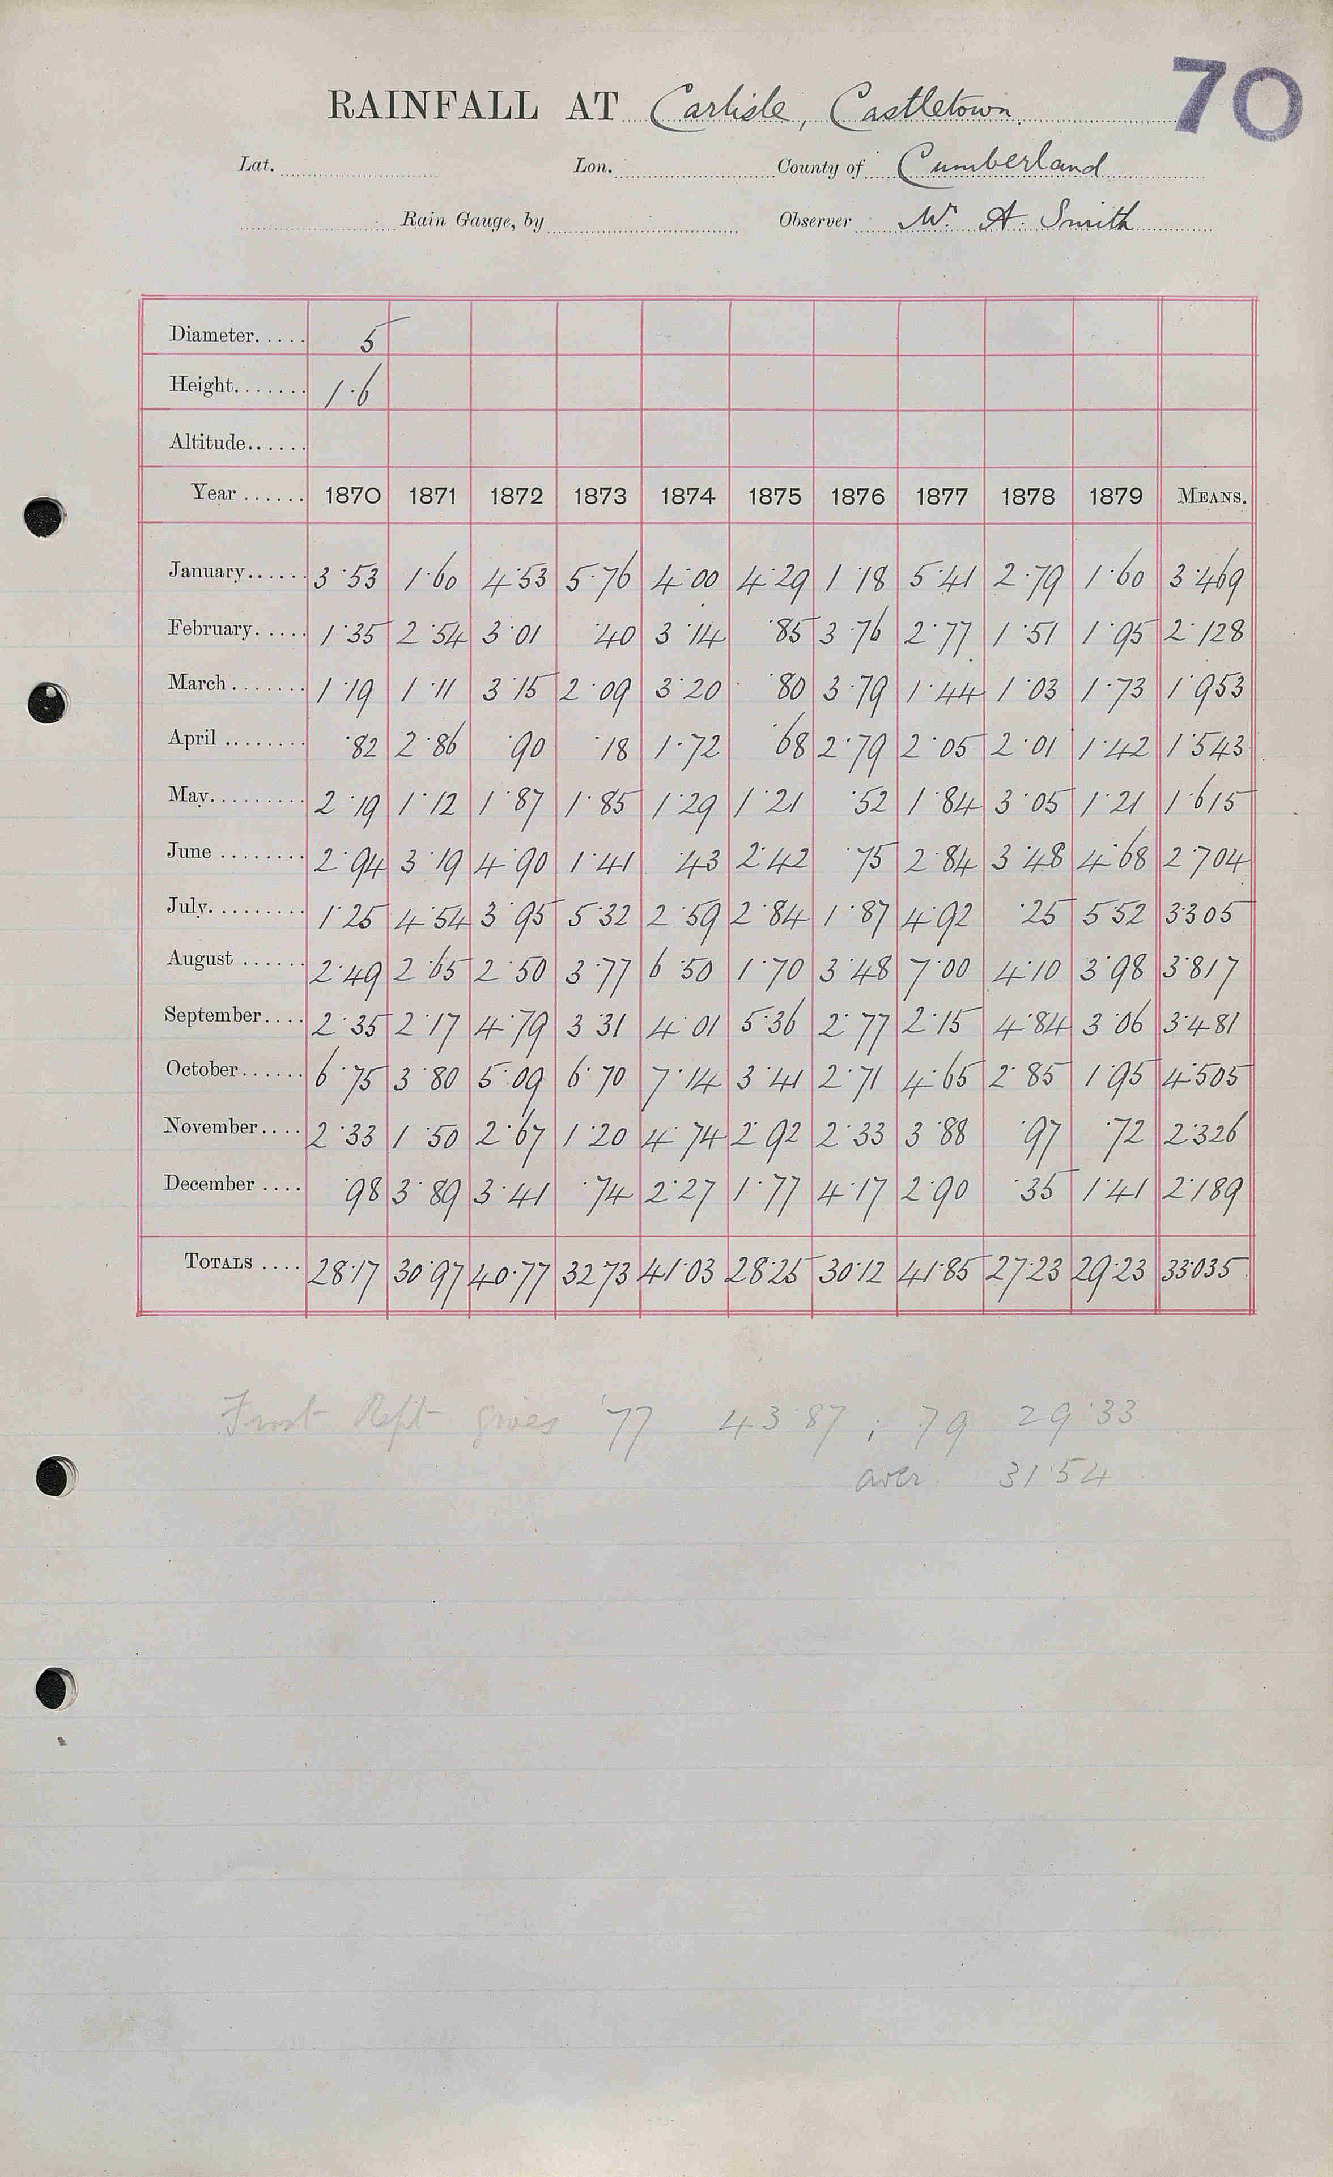 70
RAINFALL AT Carlisle, Castletown.
Lat. Lon. County of Cumberland
Rain Gauge, by Observer Mr. A. Smith
Diameter..... 5
Height....... 1·6
Altitude......
Year ...... 1870 1871 1872 1873 1874 1875 1876 1877 1878 1879 MEANS.
January...... 3·53 1·60 4·53 5·76 4·00 4·29 1·18 5·41 2·79 1·60 3·469
February..... 1·35 2·54 3·01 ·40 3·14 ·85 3·76 2·77 1·51 1·95 2·128
March....... 1·19 1·11 3·15 2·09 3·20 ·80 3·79 1·44 1·03 1·73 1·953
April ........ ·82 2·86 ·90 ·18 1·72 ·68 2·79 2·05 2·01 1·42 1·543
May......... 2·19 1·12 1·87 1·85 1·29 1·21 ·52 1·84 3·05 1·21 1·615
June ........ 2·94 3·19 4·90 1·41 ·43 2·42 ·75 2·84 3·48 4·68 2·704
July......... 1·25 4·54 3·95 5·32 2·59 2·84 1·87 4·92 ·25 5·52 3·305
August ...... 2·49 2·65 2·50 3·77 6·50 1·70 3·48 7·00 4·10 3·98 3·817
September.... 2·35 2·17 4·79 3·31 4·01 5·36 2·77 2·15 4·84 3·06 3·481
October...... 6·75 3·80 5·09 6·70 7·14 3·41 2·71 4·65 2·85 1·95 4·505
November.... 2·33 1·50 2·67 1·20 4·74 2·92 2·33 3·88 ·97 ·72 2·326
December .... ·98 3·89 3·41 ·74 2·27 1·77 4·17 2·90 ·35 1·41 2·189
TOTALS .... 28·17 30·97 40·77 32·73 41·03 28·25 30·12 41·85 27·23 29·23 33·035
gives '77 43·87; 79 29·33
aver. 31·54